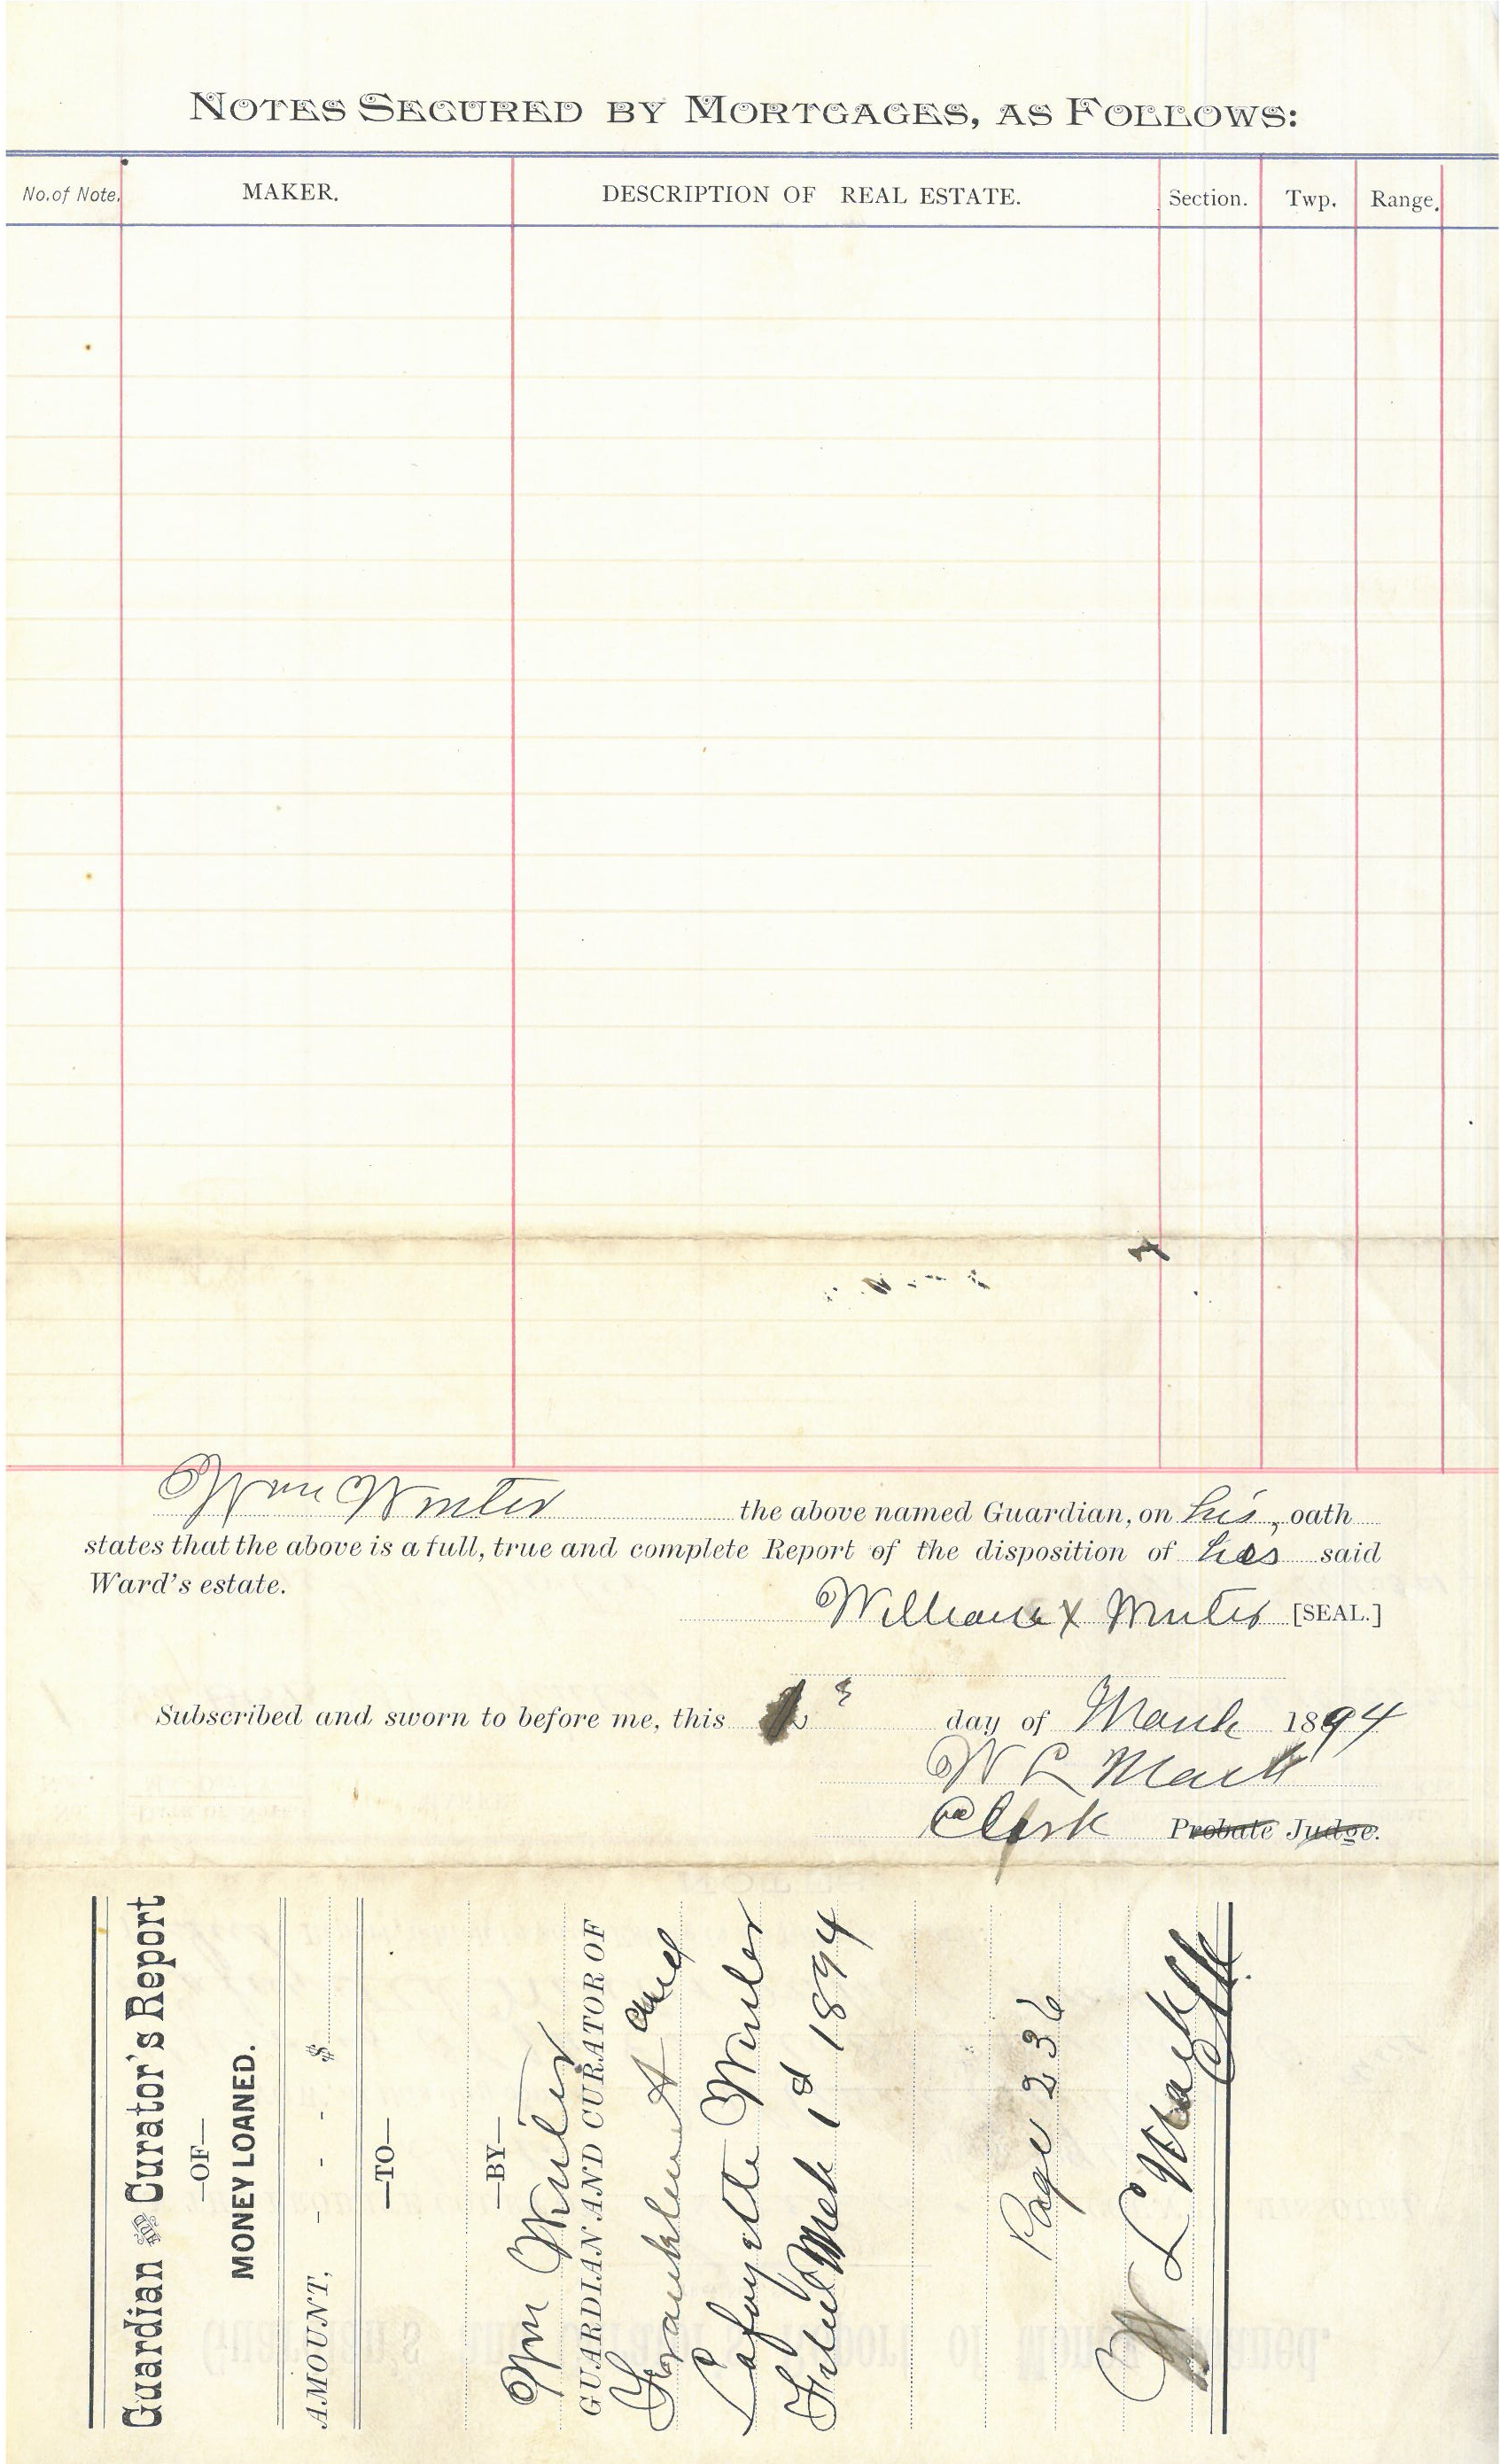 NOTES SECURED BY MORTGAGES, AS FOLLOWS:
No. of Note. MAKER. DESCRIPTION OF REAL ESTATE. Section. Twp. Range.
Wm Winter the above named Guardian, on his, oath
states that the above is a full, true and complete Report of the disposition of his said
Ward's estate.
William X Winter [SEAL.]
Subscribed and sworn to before me, this day of March 1894
W L Mack
Clerk Probate Judge.
Guardian and Curator's Report
—OF—
MONEY LOANED.
AMOUNT, - - - $
—TO—
—BY—
Wm Winter
GUARDIAN AND CURATOR OF
Franklin A and
Lafayette Winter
Filed Mch 1d 1894
Page 236
W L Mack